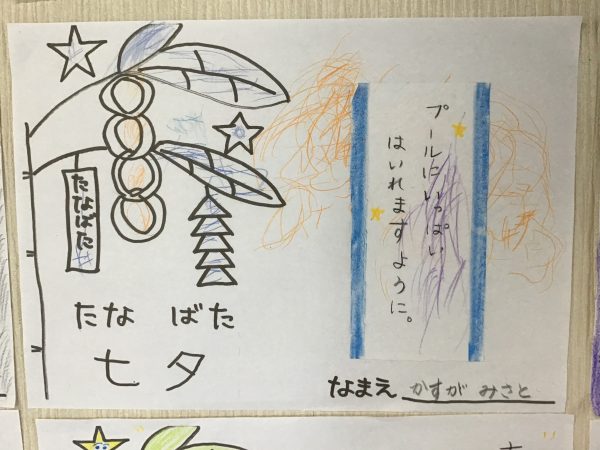 プールにいっぱい
はいれますように。
たなばた
たな ばた
七夕
なまえ かすが みさと